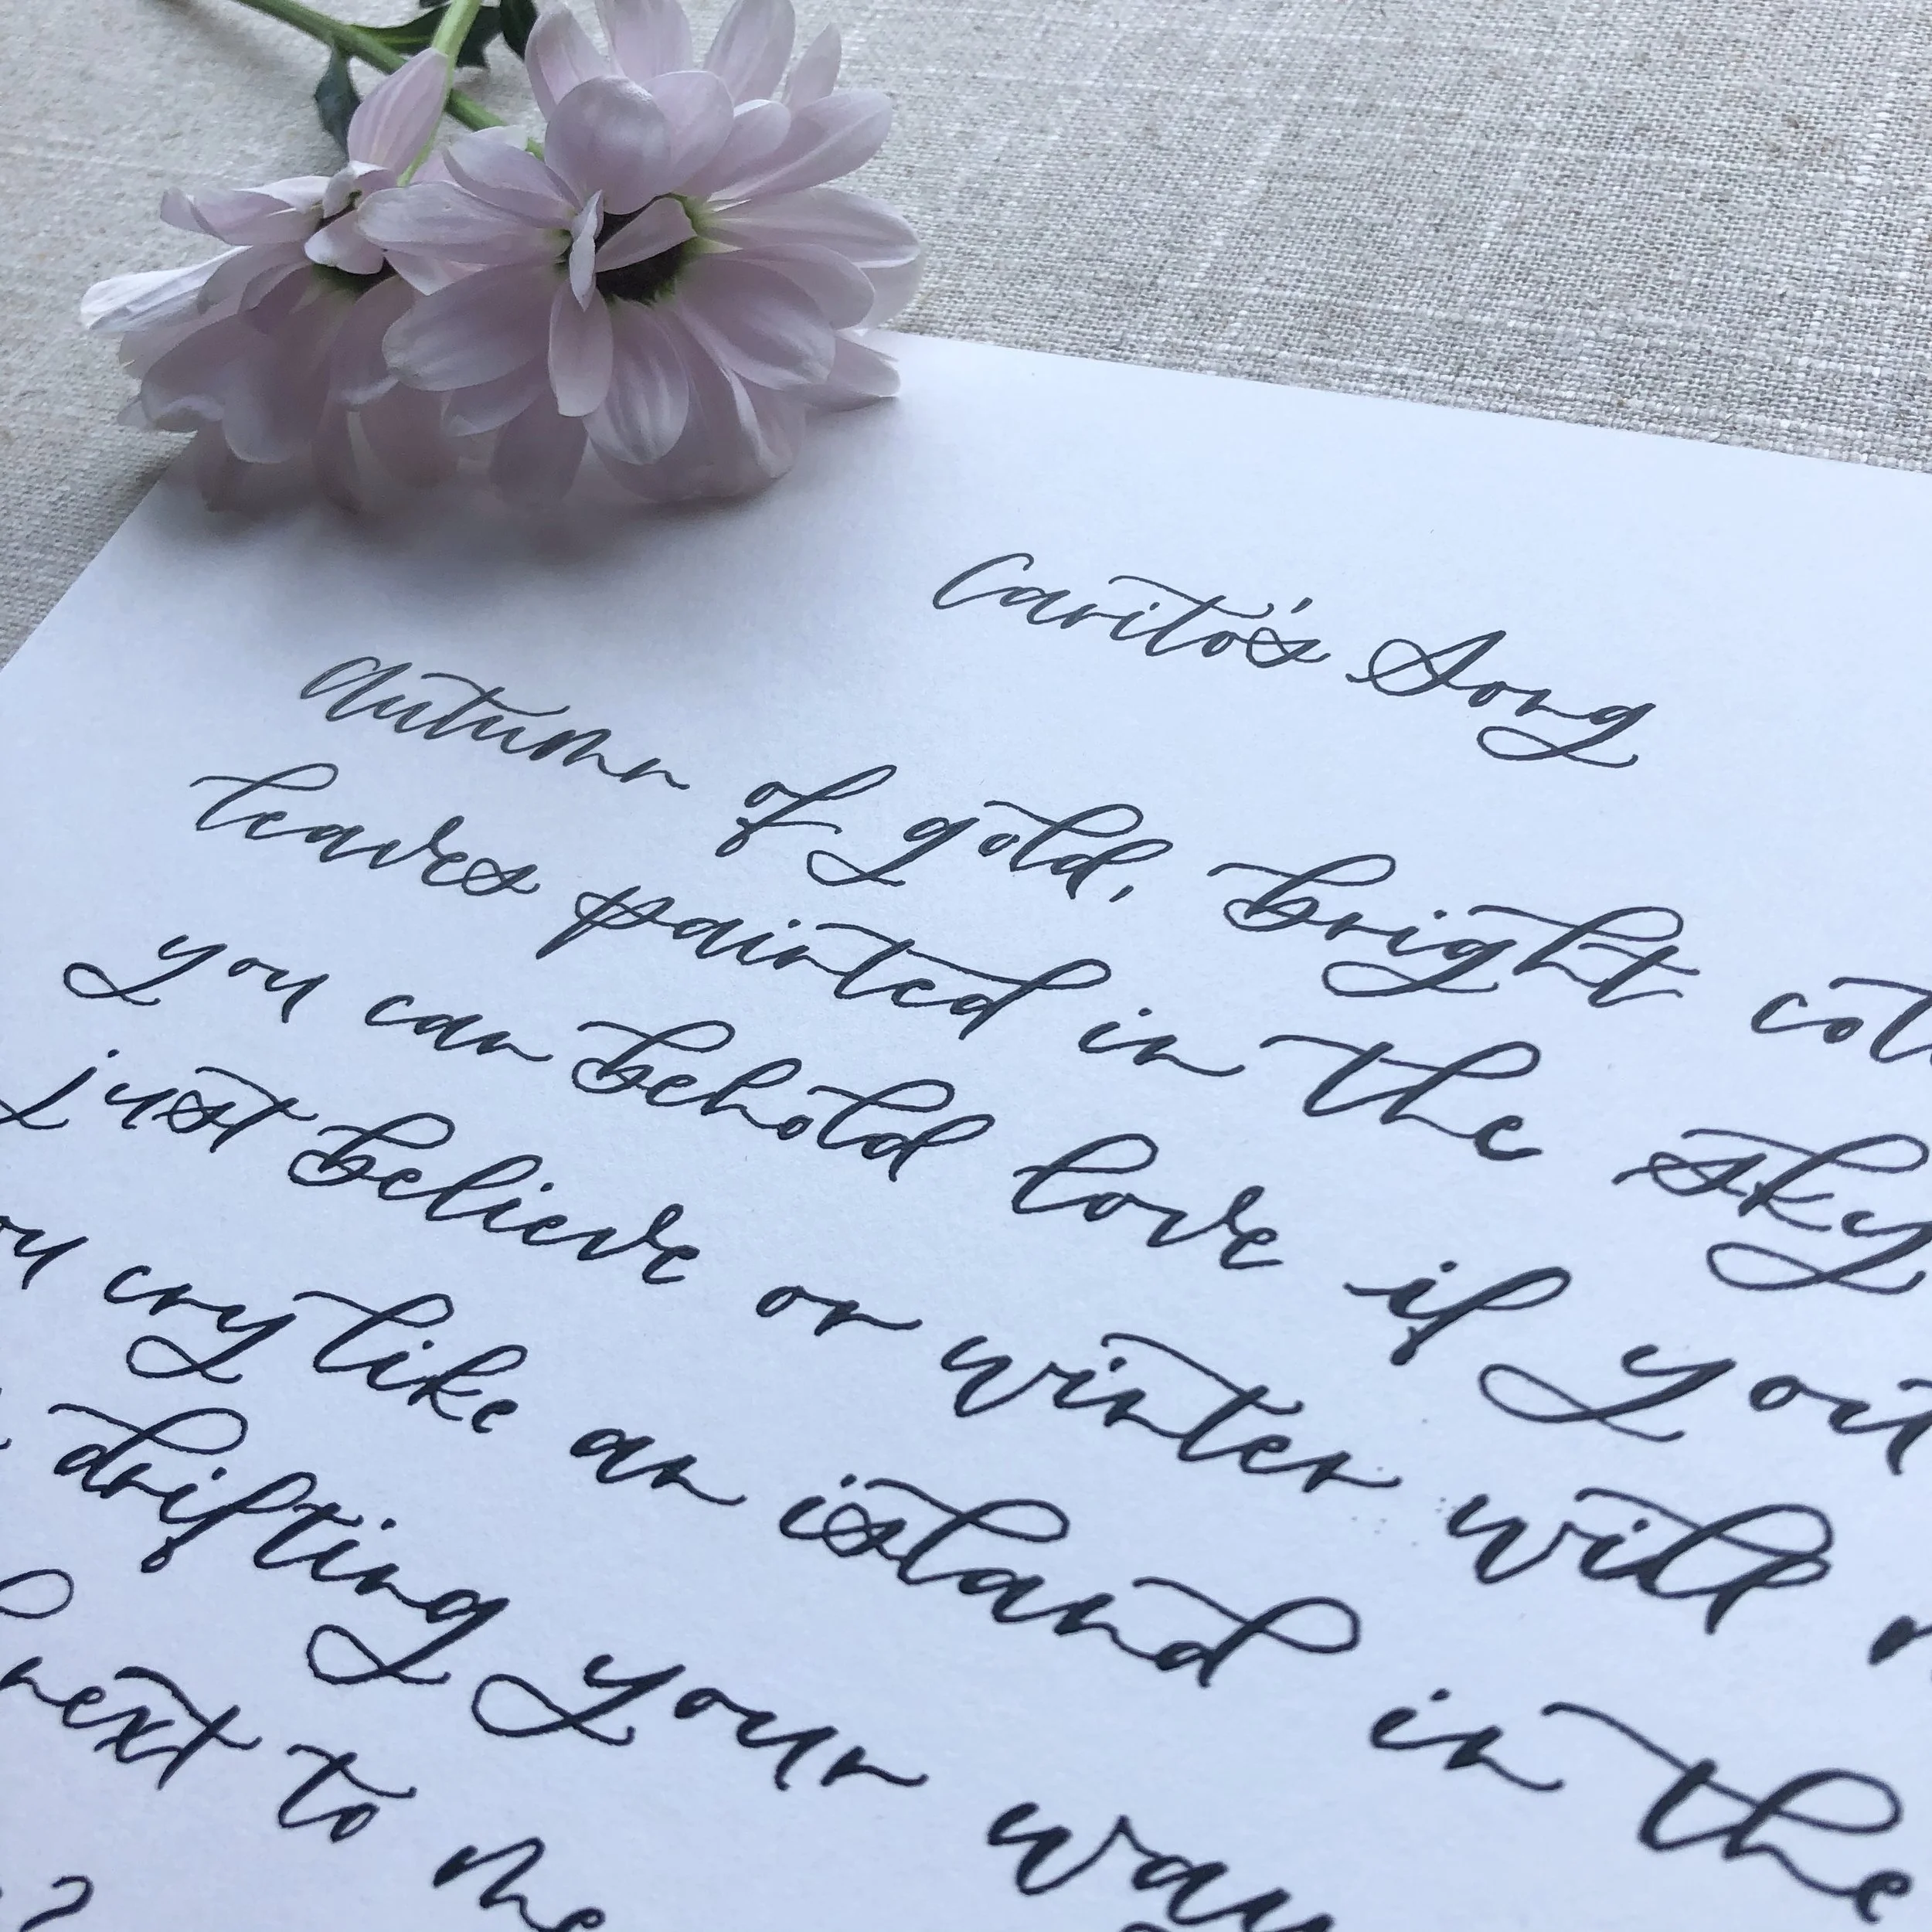 Carito's Song
Autumn of gold, bright
leaves painted in the sky
you can behold love if you
just believe or winter will
cry like an island in the
drifting your way
next to me
?